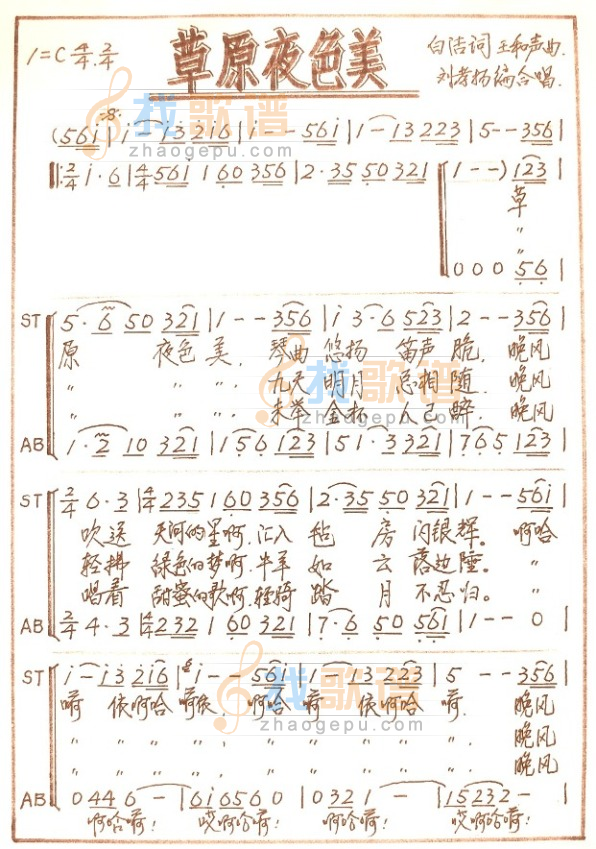 草原夜色美
1=C 4/4.2/4
白洁词 王和声曲.
刘孝扬编合唱.
找歌谱
zhaogepu.com
(5 6 i | i - i 3 2 i 6 | i - - 5 6 i | i - 1 3 2 2 3 | 5 - - 3 5 6 |
‖: 2/4 i · 6 | 4/4 5 6 i 1 6 0 3 5 6 | 2 · 3 5 5 0 3 2 1 | 1 - - ) 1 2 3 |
草
〃
〃
0 0 0 5 6 |
ST 5 · 6 5 0 3 2 1 | 1 - - 3 5 6 | i 3 · 6 5 2 3 | 2 - - 3 5 6 |
原 夜色美, 琴曲悠扬 笛声脆, 晚风
〃 〃 〃 〃, 九天明月 总相随, 晚风
〃 〃 〃 〃, 未举金杯 人已醉, 晚风
AB 1 · 2 1 0 3 2 1 | 1 5 6 1 2 3 | 5 1 · 3 3 2 1 | 7 6 5 1 2 3 |
找歌谱
zhaogepu.com
ST 2/4 6 · 3 | 4/4 2 3 5 1 6 0 3 5 6 | 2 · 3 5 5 0 3 2 1 | 1 - - 5 6 i |
吹送 天河的星啊, 汇入毡房闪银辉。 啊哈
轻拂 绿色的梦啊, 牛羊如云落边陲。 〃
唱着 甜蜜的歌啊, 轻骑踏月不忍归。 〃
AB 2/4 4 · 3 | 4/4 2 3 2 1 6 0 3 2 1 | 7 · 6 5 0 5 6 1 | 1 - - 0
ST i - i 3 2 i 6 | i - - 5 6 i | i - 1 3 2 2 3 | 5 - - 3 5 6 |
嗬 依啊哈 嗬依, 啊哈嗬 依啊哈 嗬. 晚风
〃 〃 〃 〃 〃 〃 〃 〃. 晚风
〃 〃 〃 〃 〃 〃 〃 〃. 晚风
找歌谱
zhaogepu.com
AB 0 4 4 6 - | 6 i 6 5 6 0 | 0 3 2 1 - | 1 5 2 3 2 - |
啊哈嗬! 哎啊哈嗬! 啊哈嗬! 哎啊哈嗬!